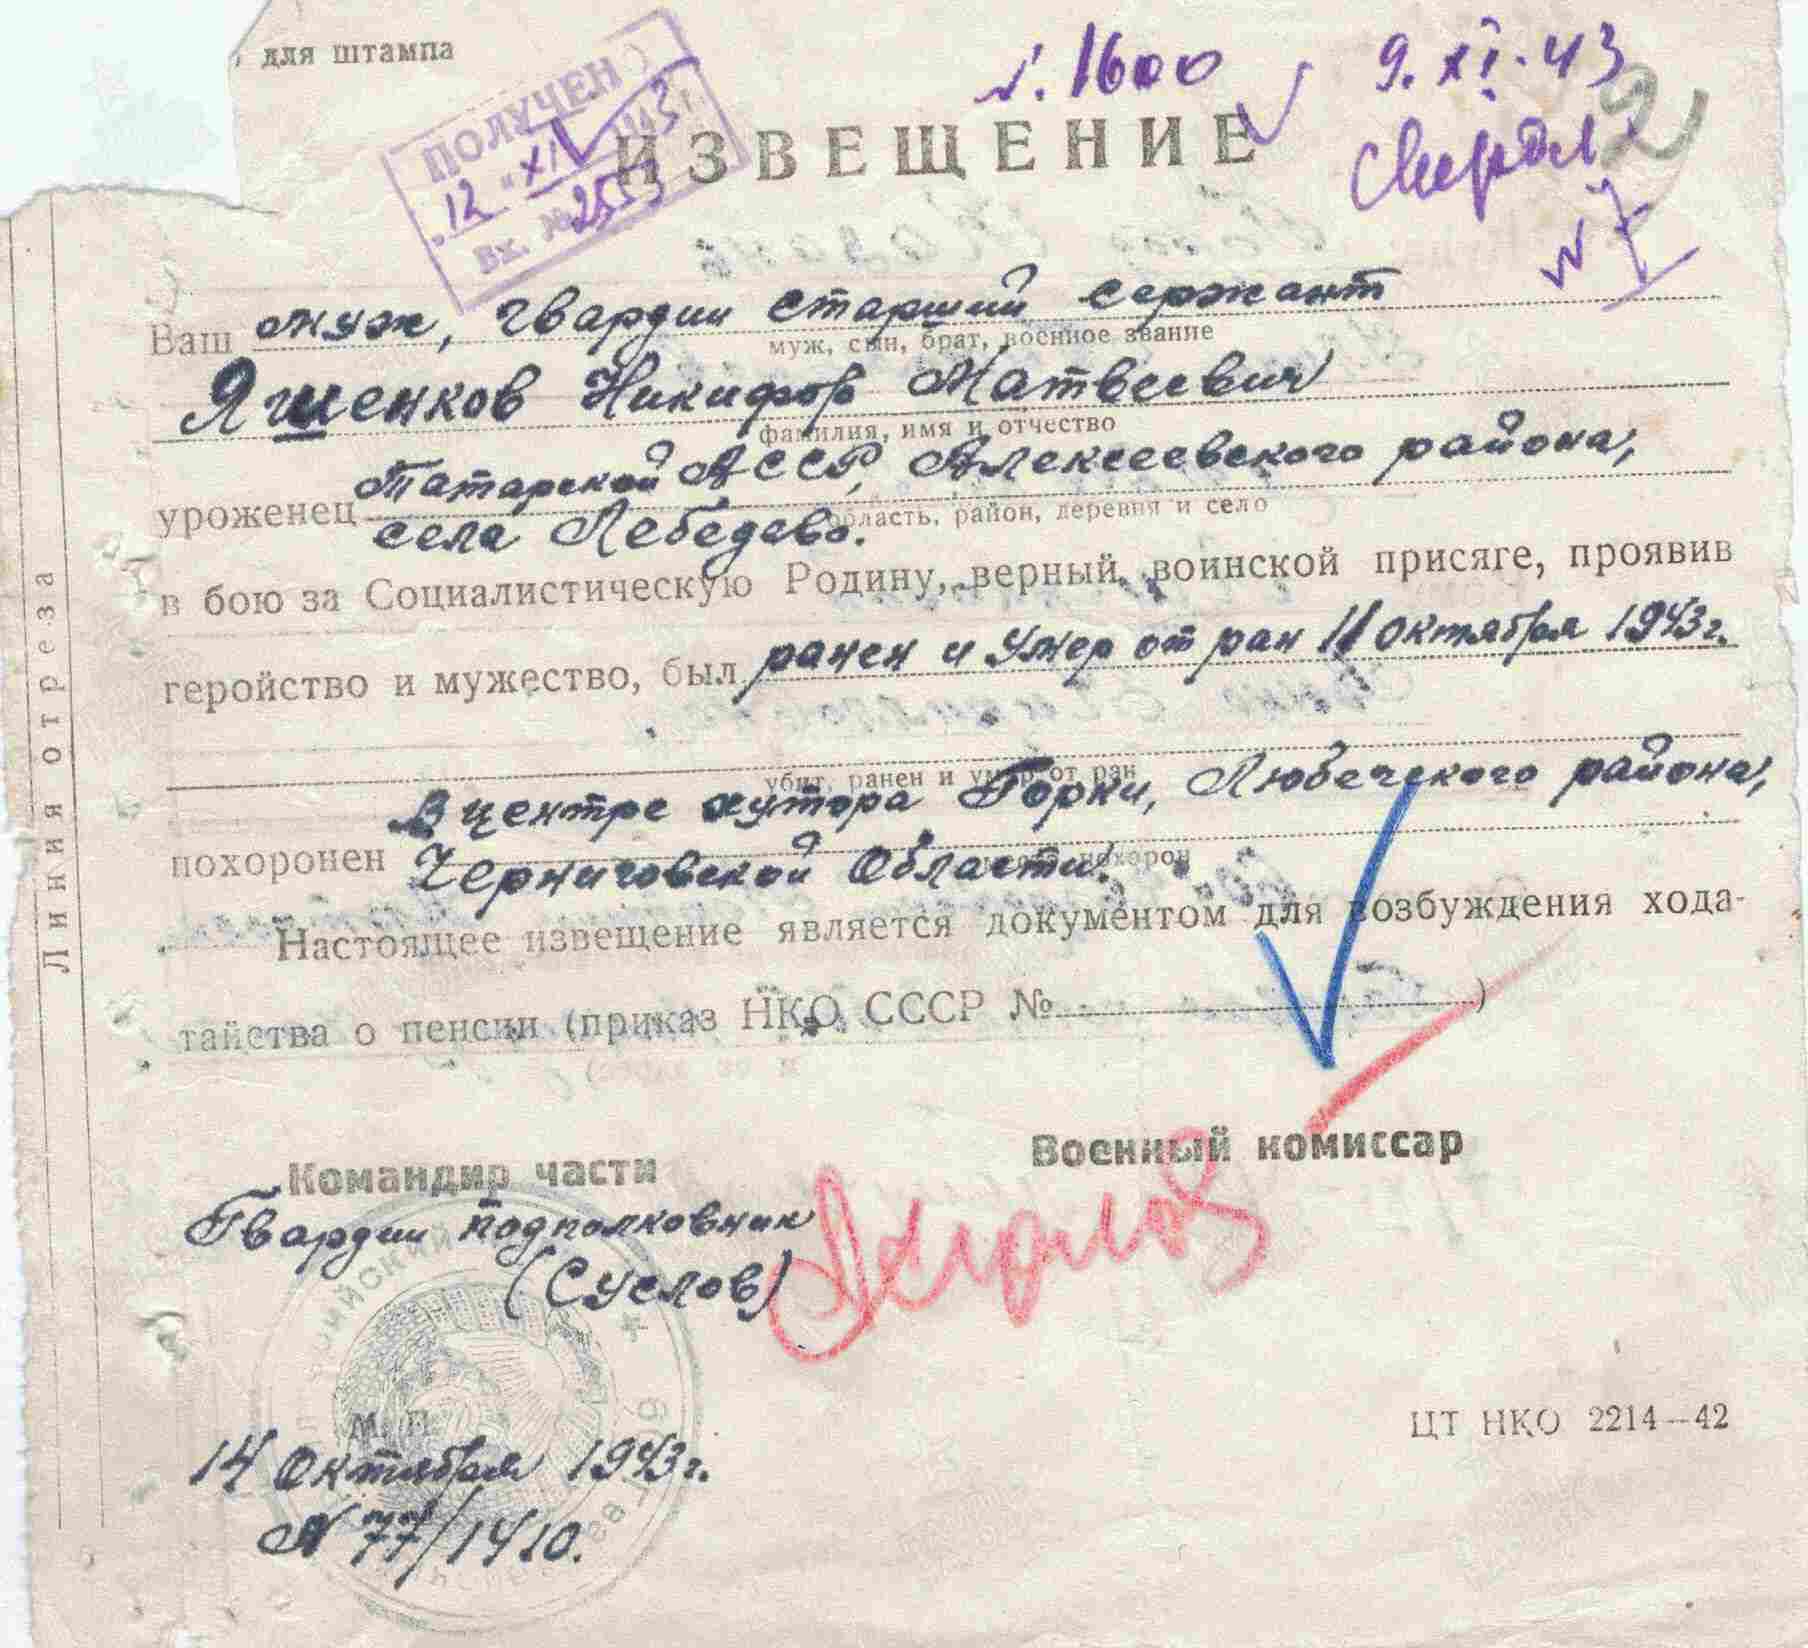 для штампа
№ 1600 9.XI.43
ПОЛУЧЕНО
12 "XI 1943 г.
Вх. № 2553
ИЗВЕЩЕНИЕ
Ваш муж, гвардии старший сержант
муж, сын, брат, военное звание
Яшенков Никифор Матвеевич
фамилия, имя и отчество
Татарской АССР, Алексеевского района,
уроженец
область, район, деревня и село
села Лебедево.
в бою за Социалистическую Родину, верный воинской присяге, проявив
геройство и мужество, был ранен и умер от ран 11 октября 1943г.
убит, ранен и умер от ран
В центре хутора Горки, Любечского района,
похоронен
похорон
Черниговской области.
Настоящее извещение является документом для возбуждения хода-
тайства о пенсии (приказ НКО СССР № )
Командир части
Военный комиссар
Гвардии подполковник
(Суслов)
М. П.
14 октября 1943г.
№ 77/1410.
ЦТ НКО 2214—42
Линия отреза